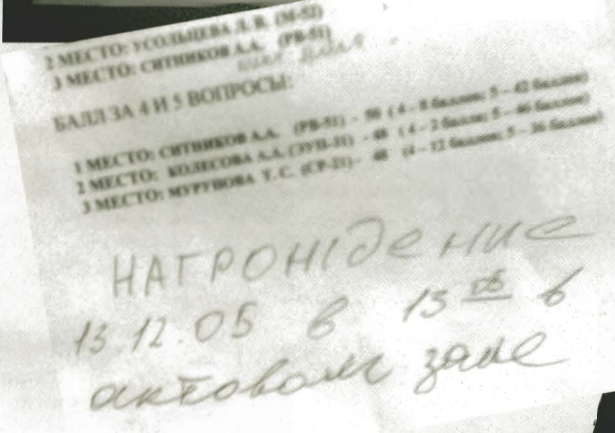 2 МЕСТО: УСОЛЬЦЕВА Л. В. (М-52)
3 МЕСТО: СИТНИКОВ А.А. (РВ-51)
БАЛЛ ЗА 4 И 5 ВОПРОСЫ:
1 МЕСТО: СИТНИКОВ А.А. (РВ-51) - 50 (4 - 8 баллов; 5 - 42 баллов)
2 МЕСТО: КОЛЕСОВА А.А. (ЗУП-31) - 48 (4 - 2 балла; 5 - 46 баллов)
3 МЕСТО: МУРУНОВА Т. С. (СР-21) - 48 (4 - 12 баллов; 5 - 36 баллов)
НАГРОНІдение
13.12.05 в 15 в
актовом зале